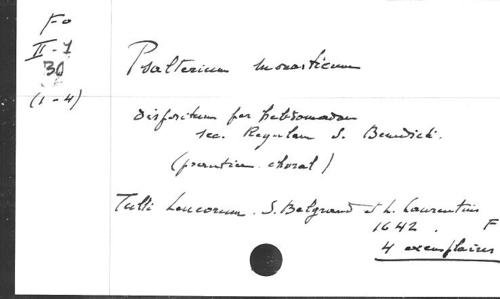 Fo
II-1
30
(1-4)
Psalterium monasticum
dispositum per hebdomadam
sec. Regulam S. Benedicti.
(partim choral)
Tulli Leucorum. S. Belgrand et L. Laurentius
1642. F
4 exemplaires